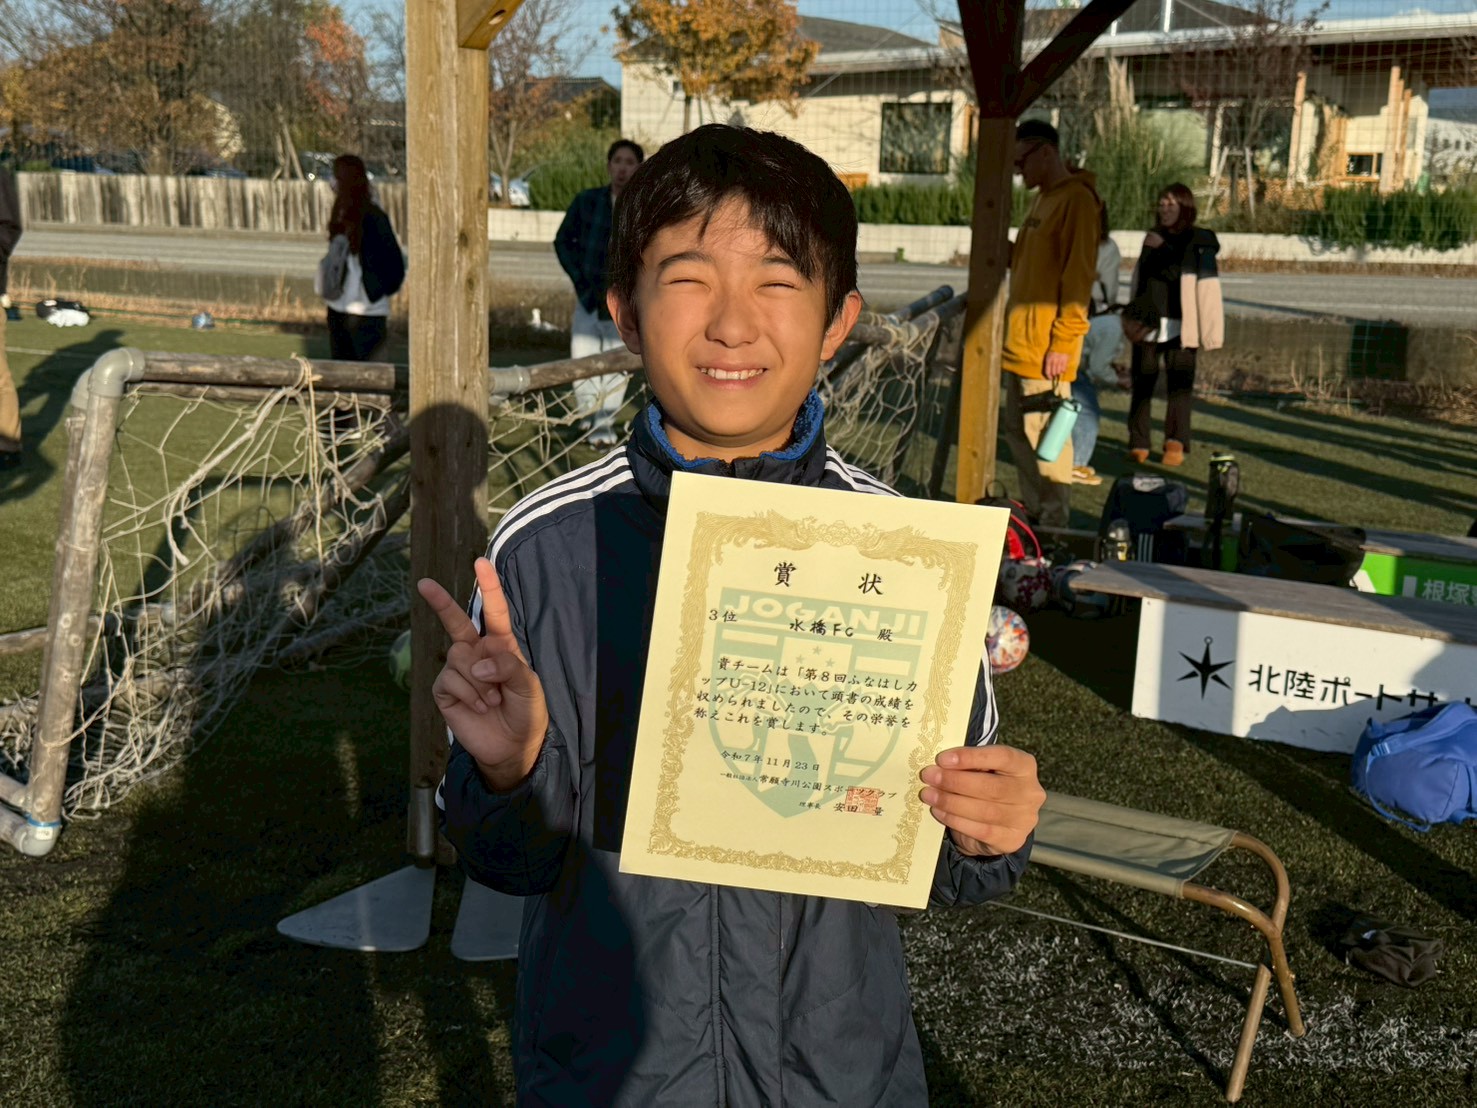 賞 状
JOGANJI
3位 水橋FC 殿
貴チームは「第8回ふなはしカ
ップU-12」において頭書の成績を
収められましたので、その栄誉を
称えこれを賞します。
令和7年11月23日
一般社団法人常願寺川公園スポーツクラブ
理事長 安田 量
北陸ポートサ
根塚